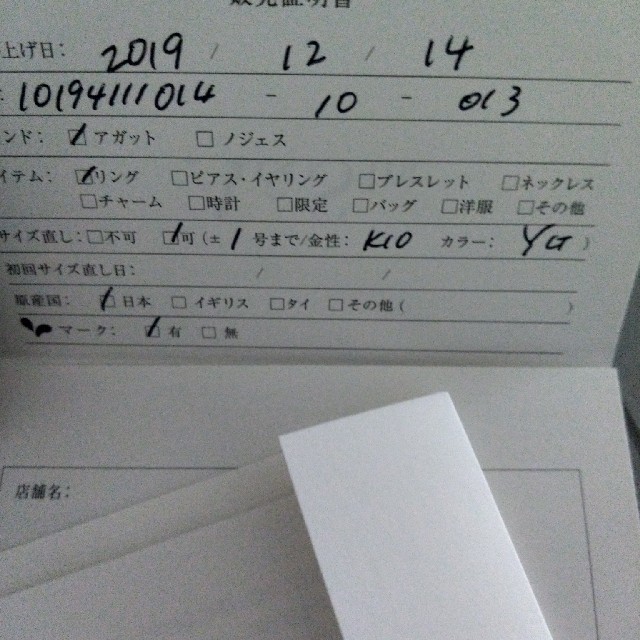 上げ日: 2019 / 12 / 14
: 10194111014 - 10 - 013
ンド: ☑アガット □ノジェス
イテム: ☑リング □ピアス・イヤリング □ブレスレット □ネックレス
□チャーム □時計 □限定 □バッグ □洋服 □その他
サイズ直し: □不可 ☑可(± 1 号まで/金性: K10 カラー: YG )
初回サイズ直し日: / /
原産国: ☑日本 □イギリス □タイ □その他( )
マーク: ☑有 □無
店舗名: